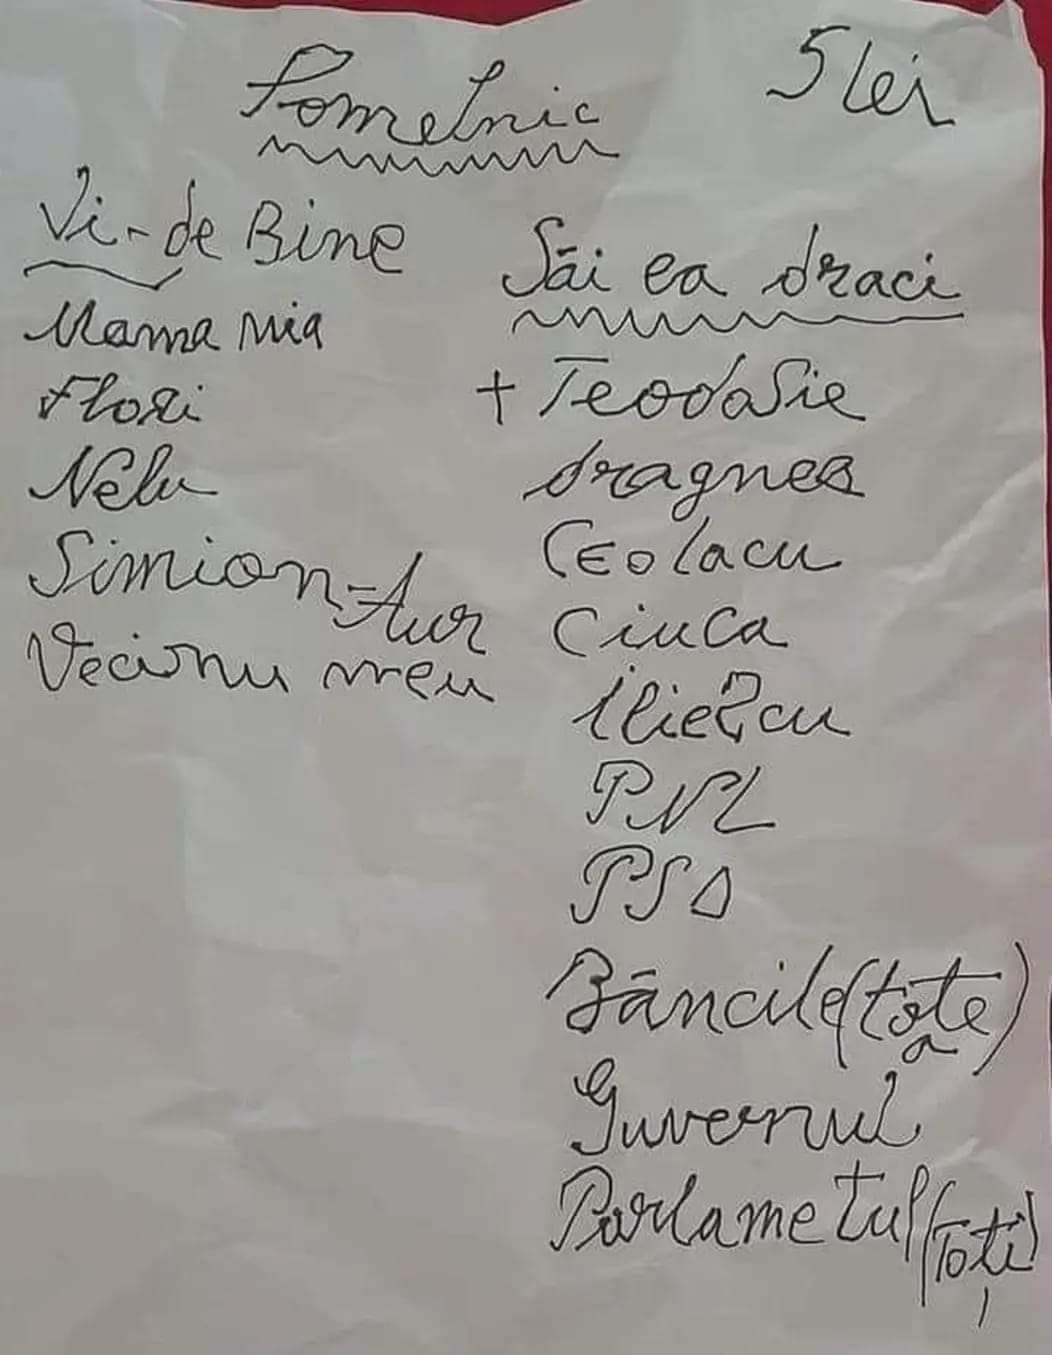 Pomelnic
5 lei
Vi-de Bine
Mama mia
Flori
Nelu
Simion-Aur
Vecinu meu
Săi ea draci
+ Teodosie
dragnea
Ceolacu
Ciuca
iliescu
PNL
PSD
Băncile (toate)
Guvernul
Parlametul (Toți)